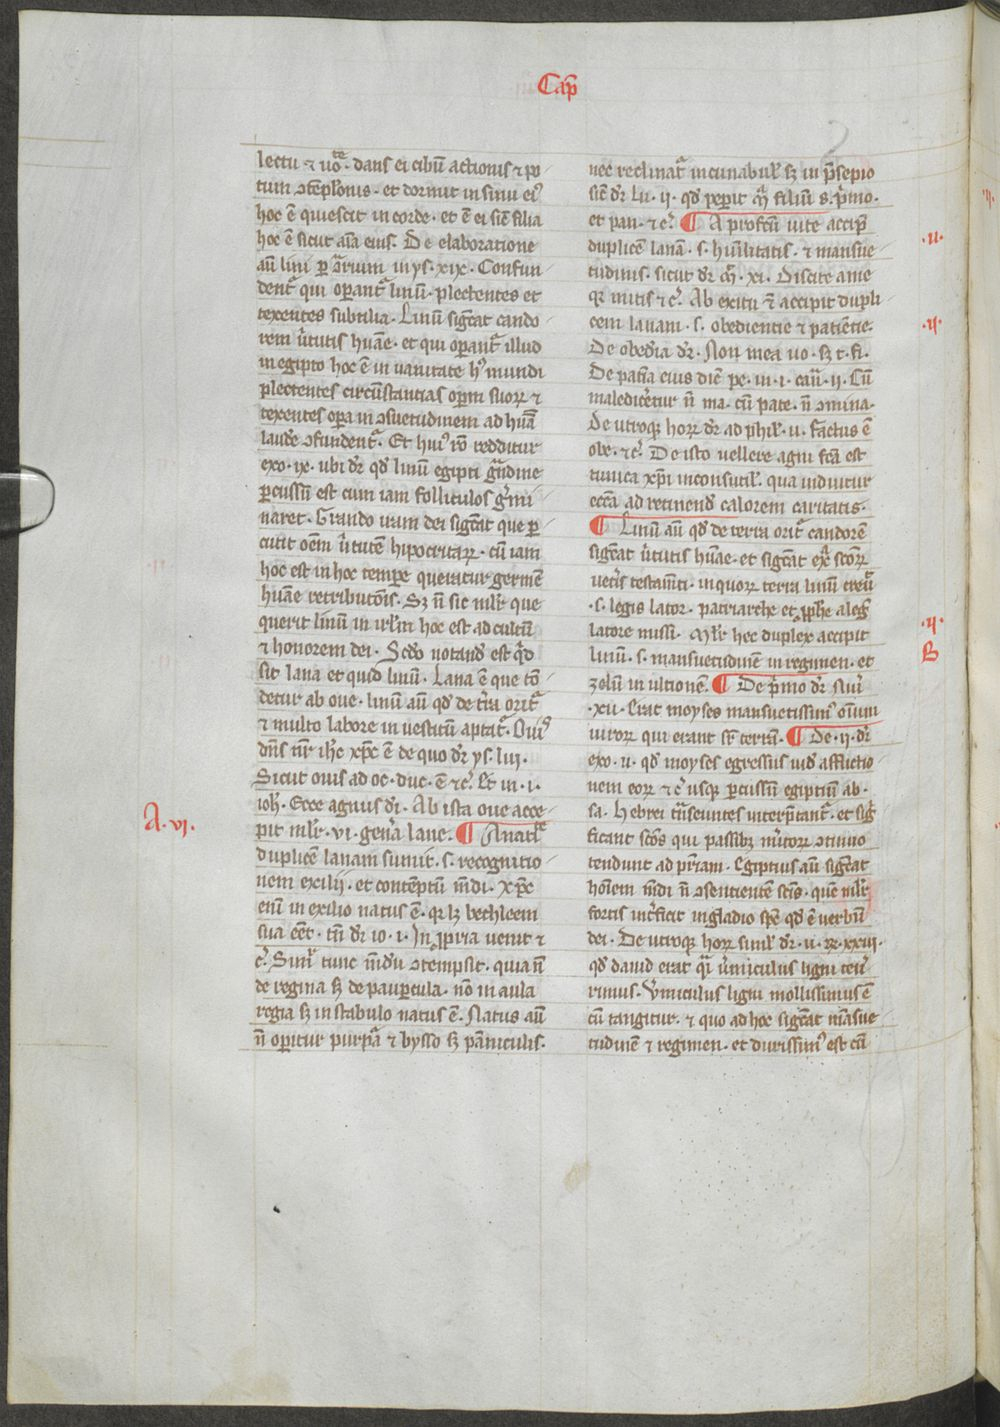 Cap̄
lectu ⁊ uo͞te. dans ei cibū actionis ⁊ po
tum ꝯtēpl̄onis. et dormit in sinu eiꝰ
hoc ē quiescit in corde. et ē ei sic̄ filia
hoc ē sicut aīa eius. De elaboratione
aū lini ꝑ ꝯ͛rium in ys. xix. Confun
dent̄ qui oꝑant̄ linū. plectentes et
texentes subtilia. Linū sigc̄at cando
rem ūtutis huāe. et qui oꝑant̄ illud
in egipto hoc ē in uanitate hꝰ mundi
plectentes circūstantias oꝑm suoꝝ ⁊
texentes oꝑa in ꝯsuetudinem ad huā
laudē ꝯfundent̄. Et huiꝰ rō redditur
exo. ix. ubi dr̄ qd̄ linū egipti gͣndine
ꝑcussū est cum iam folliculos gͥmi
naret. Grando iram dei sigc̄at que ꝑ
cutit oēm ūtutē hipocritaꝝ. cū iam
hoc est in hoc tempore queratur germē
huāe retributōis. Sꝫ n̄ sic mlr̄ que
querit linū in irl̄m hoc est ad cultū
⁊ honorem dei. Scd̄o notand̄ est qͥd
sit lana et quid linū. Lana ē que tō
detur ab oue. linū aū qd̄ de tͥra orit̄
⁊ multo labore in uestitū aptat̄. Ouiꝰ
dn̄s nr̄ ih̄c xp̄c ē de quo dr̄ ys. liii.
Sicut ouis ad oc. duc. ē ⁊c̄. Et in. i.
ioh̄. Ecce agnus dī. Ab ista oue acce
A. vi.
pit mlr̄. vi. genͥa lane. ¶ A natīͭe
duplicē lanam sumit. s. recognitio
nem exilii. et contēptū m̄di. xp̄c
enī in exilio natus ē. qꝛ lꝫ bethleem
sua eēt. tn̄ dr̄ io. i. In ꝓpria uenit ⁊
c̄. Simͥl tunc m̄dū ꝯtempsit. quia n̄
de regina sꝫ de pauꝑcula. nō in aula
regia sꝫ in stabulo natus ē. Natus aū
n̄ oꝑitur purpͣa ⁊ bysso sꝫ pāniculis.
nec reclinat̄ in cunabul̄ sꝫ in p̄sepio
sic̄ dr̄ lu. ii. qd̄ peꝑit mͣ filiū s. pͥmo.
et pan. ⁊c̄. ¶ A profectu uite accip̄
.ii.
duplicē lanā. s. hūilitatis. ⁊ mansue
tudinis. sicut dr̄ mͣ. xi. Discite a me
qꝛ mitis ⁊c̄. Ab exitu ē accipit dupli
.ii.
cem lanam. s. obedientie ⁊ patiētie.
De obed̄ia dr̄. Non mea uo. sꝫ t. fi.
De pat̄ia eius dic̄ pe. in. i. can̄. ii. Cū
maledicͥetur n̄ ma. cū pate. n̄ ꝯmina.
De utroqꝫ hoꝝ dr̄ ad phil̄. ii. Factus ē
obe. ⁊c̄. De isto uellere agni fc̄a est
tunica xp̄i inconsutil̄. qua induitur
ecc̄a ad retinend̄ calorem caritatis.
¶ Linū aū qd̄ de terra orit̄ candorē
sigc̄at ūtutis huāe. et sigc̄at exͣ sc̄oꝝ
uetͥis testam̄ti. in quoꝝ terra linū creu̾
.s. legis lator. patriarche et ꝓph̄e a leg̾
.ii.
latore missi. Mlr̄ hec duplex accipit
B
linū. s. mansuetudinē in regimen. et
zelū in ultionē. ¶ De pͥmo dr̄ Nūi
.xii. Erat moyses mansuetissimꝰ oīum
uiroꝝ qui erant sr̄ terrā. ¶ De. ii. dr̄
exo. ii. qd̄ moyses egressus uid̄ afflictio
nem eoꝝ ⁊ c̄ usqꝫ ꝑcussū egiptiū ab.
sa. Hebrei tn̄seuntes interp̄tant̄. et sigͥ
ficant sc̄os qui passibꝫ mͥitoꝝ ꝯtinuo
tendunt ad pr̄iam. Egiptius aū sigc̄at
hoīem m̄di n̄ ꝯsentientē sc̄is. quē mlr̄
fortis int̄ficit in gladio sp̄c qd̄ ē uerbū
dei. De utroqꝫ hoꝝ simil̄ dr̄. ii. re. xxiii.
qd̄ dauid erat qͣi ūmiculus ligni ten̾
rimus. Vͥmiculus ligni mollissimus ē
cū tangitur. ⁊ quo ad hoc sigc̄at māsue
tudinē ⁊ regimen. et durissimꝰ est cū